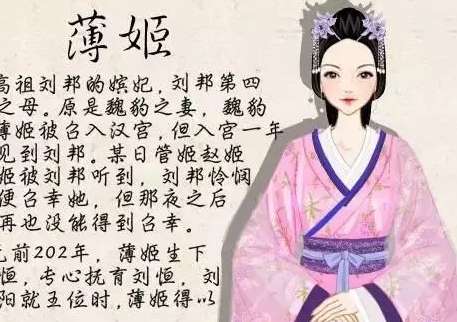 薄姬
高祖刘邦的嫔妃，刘邦第四
之母。原是魏豹之妻，魏豹
薄姬被召入汉宫，但入宫一年
见到刘邦。某日管姬赵姬
姬被刘邦听到，刘邦怜悯
便召幸她，但那夜之后
再也没能得到召幸。
元前202年，薄姬生下
恒，专心抚育刘恒，刘
阳就五位时，薄姬得以